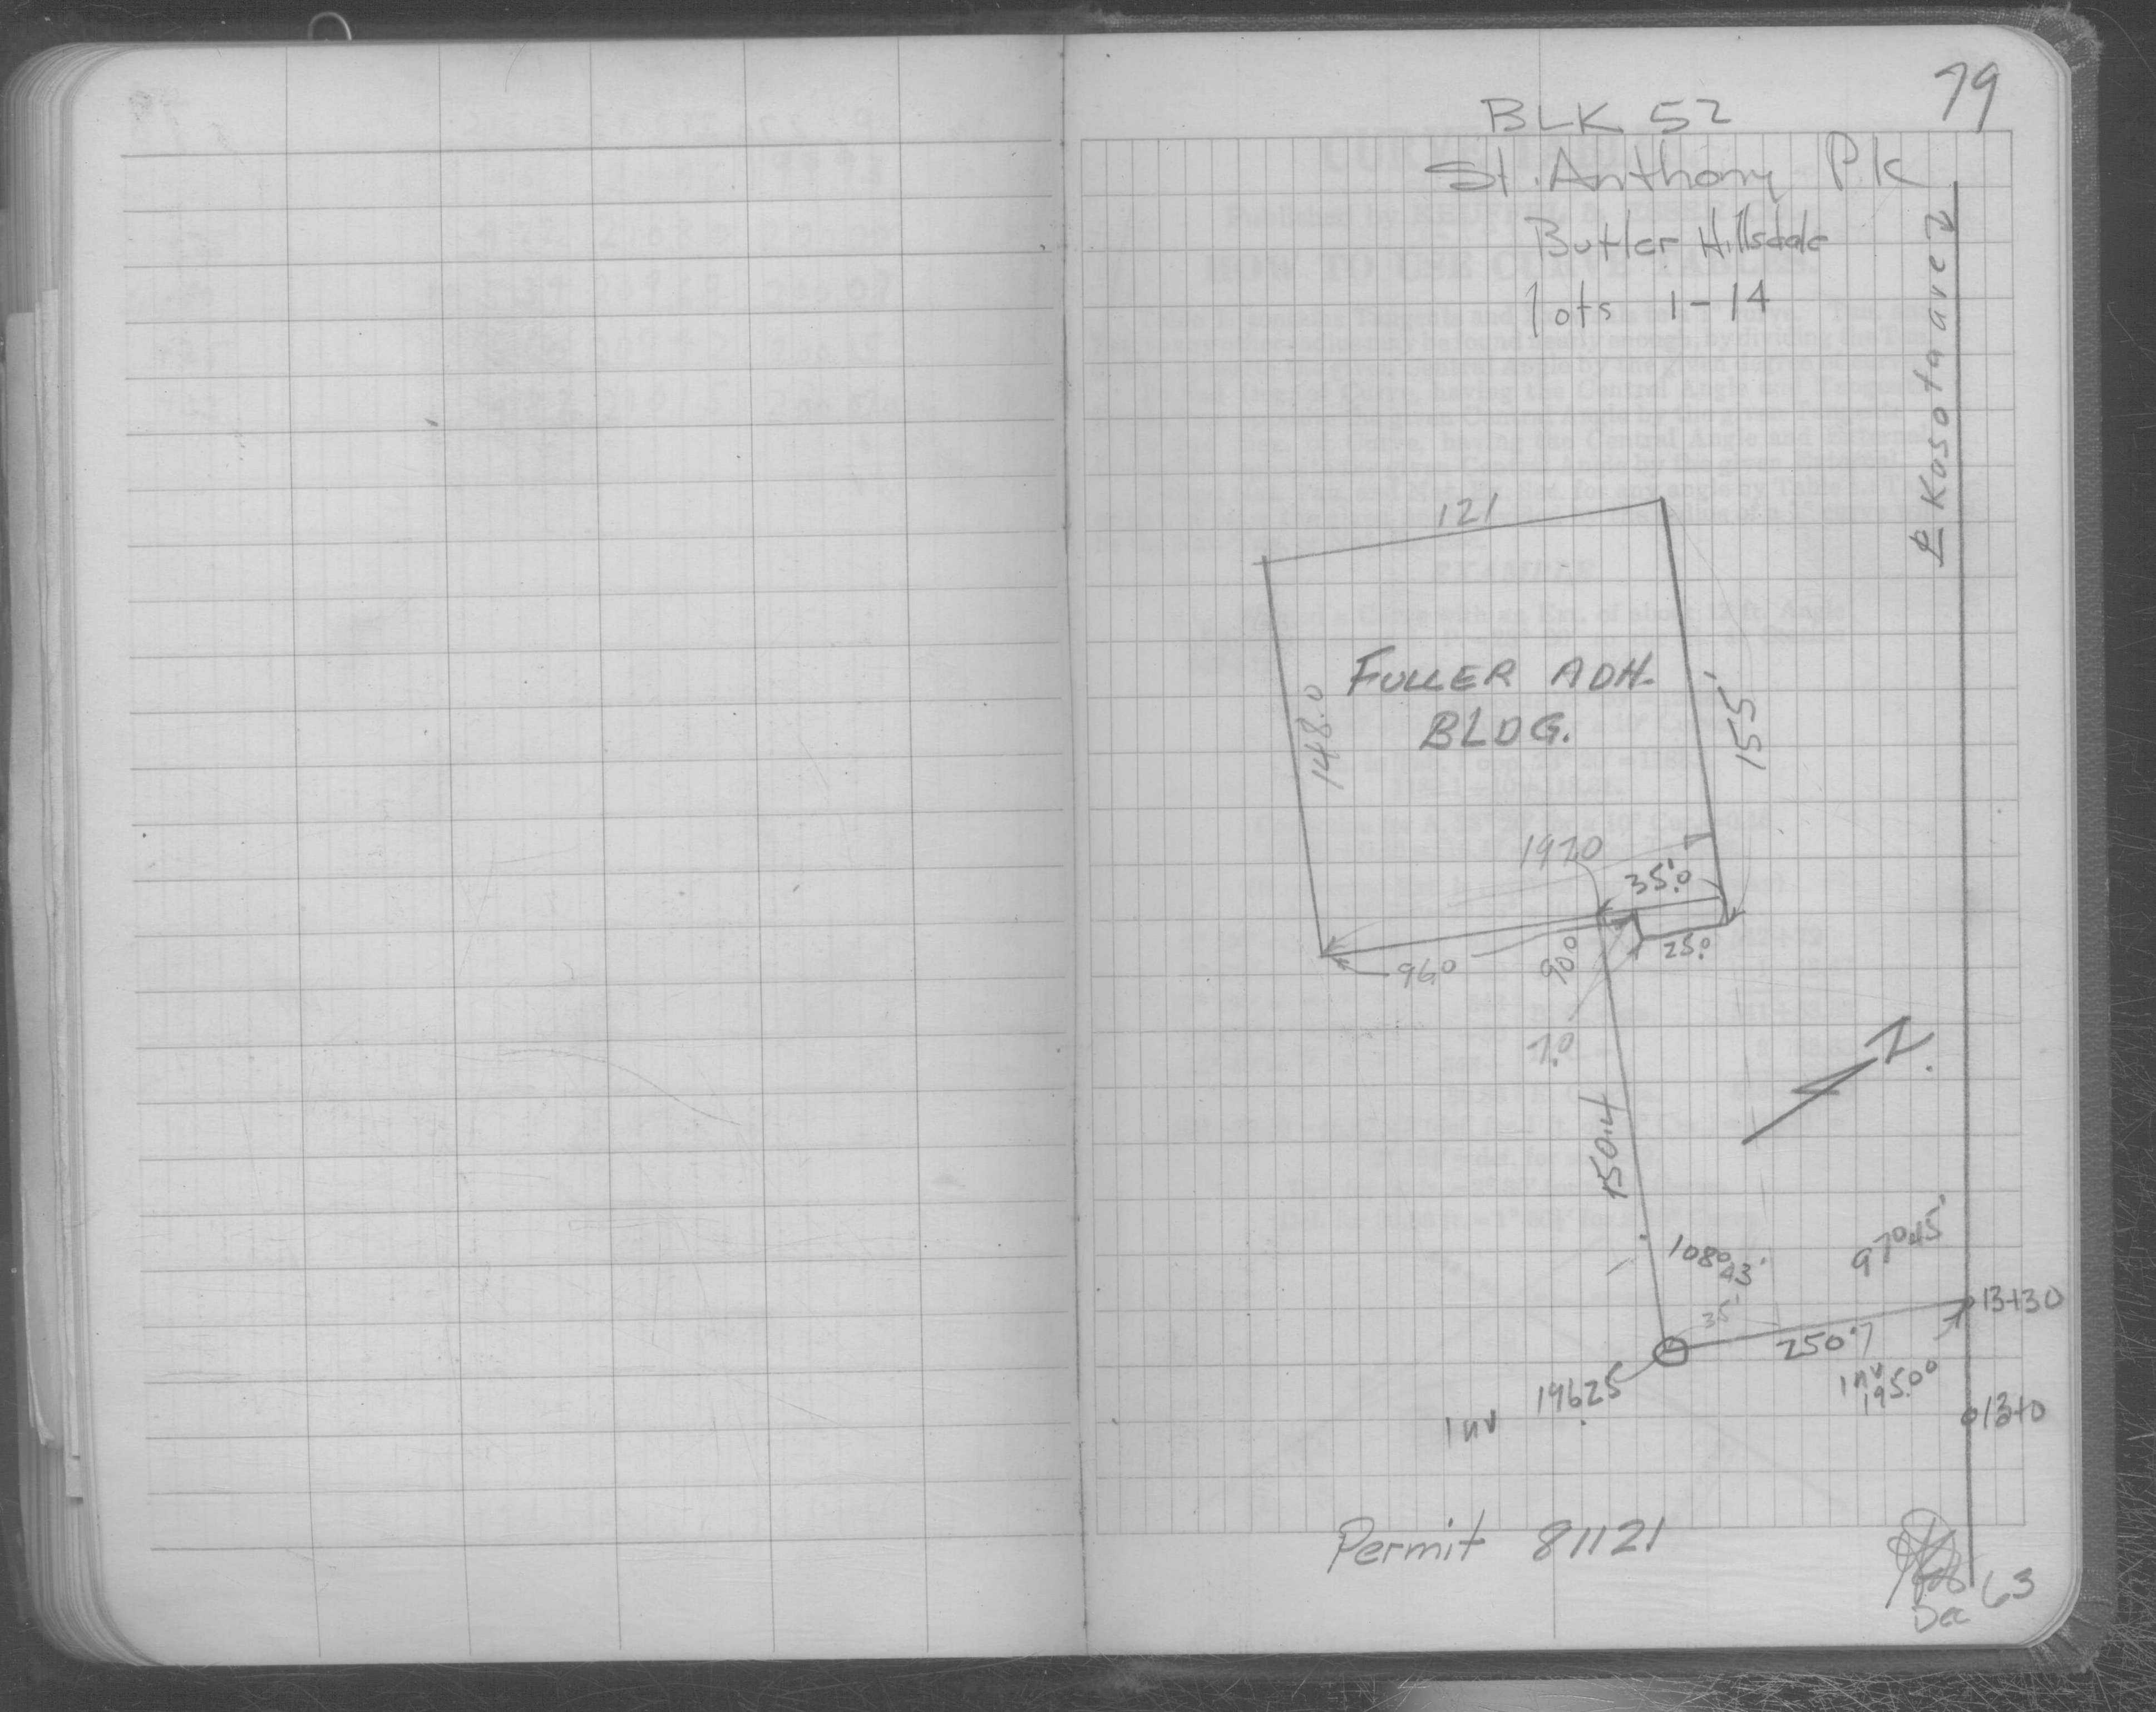 79
BLK 52
St. Anthony Pk
Butler Hillsdale
lots 1-14
℄ Kasota ave
121
FULLER ADH.
BLDG.
148.0
155'
197.0
35.0'
96.0
90.0
25.0
7.0
150.4
N.
108°43'
97°45'
35'
13+30
250.7
inv
195.00
196.25
inv
13+0
Permit 81121
Dec 63